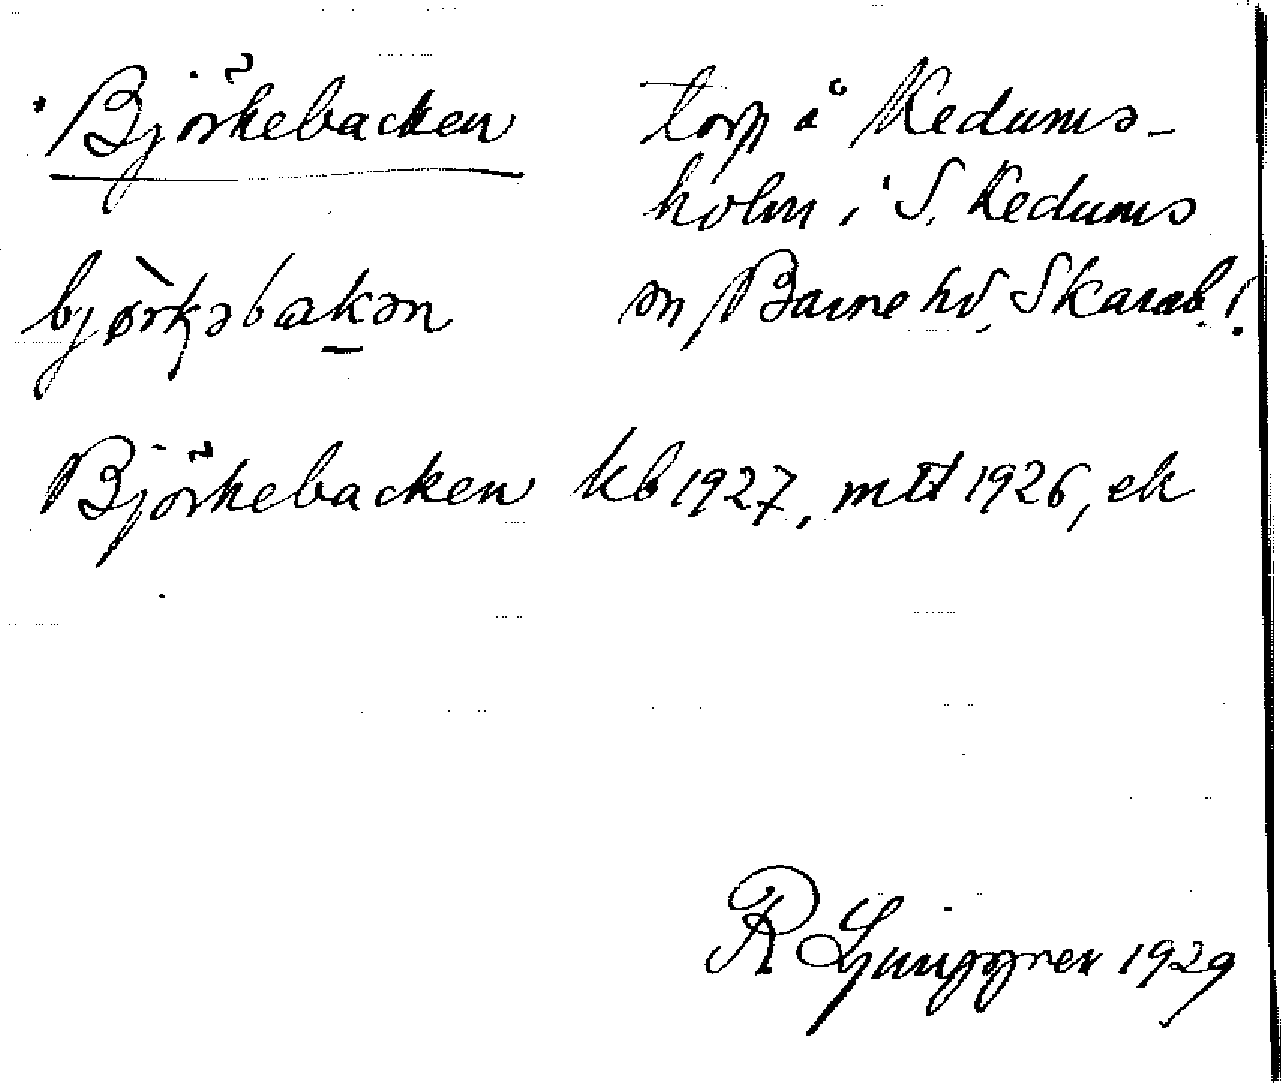 Björkebacken torp å Kedums-
holm i S. Kedums
bjørkəbakən sn Barne hd, Skarab. l.
Björkebacken kb 1927, mtl 1926, ek
R Ljunggren 1929